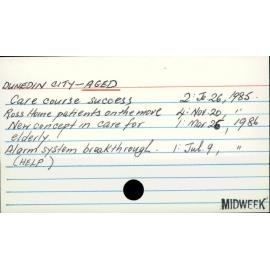 DUNEDIN CITY - AGED
Care course success 2: Je 26, 1985.
Ross Home patients on the move 4: Nov 20, "
New concept in care for 1: Mar 26, 1986
elderly
Alarm system breakthrough. 1: Jul. 9, "
(HELP)
MIDWEEK